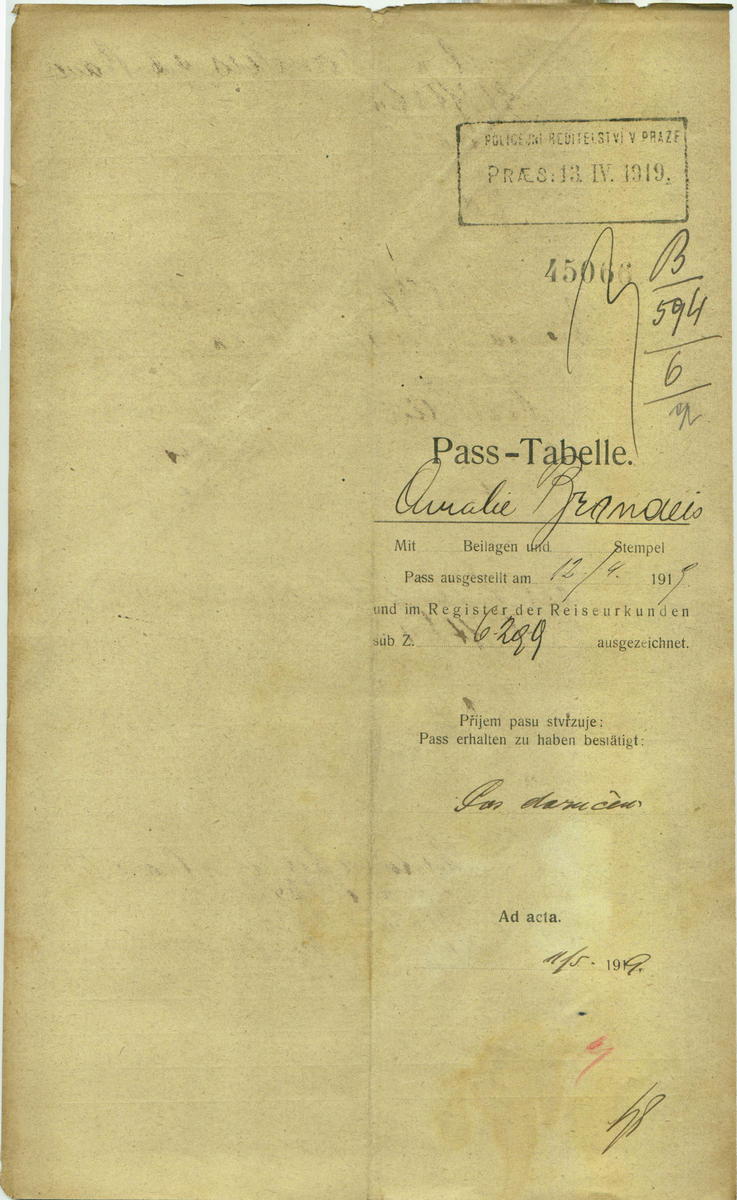 POLICEJNÍ ŘEDITELSTVÍ V PRAZE
PRÆS: 13. IV. 1919.
45066
B
594
6
Pass-Tabelle.
Amalie Brandeis
Mit Beilagen und Stempel
Pass ausgestellt am 12/4. 1919
und im Register der Reiseurkunden
sub Z. 6299 ausgezeichnet.
Příjem pasu stvrzuje:
Pass erhalten zu haben bestätigt:
Pas doručen
Ad acta.
11/5. 1919.